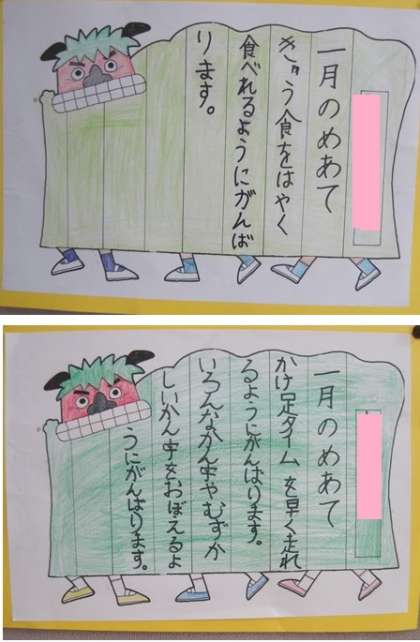 一月のめあて
きゅう食をはやく
食べれるようにがんば
ります。
一月のめあて
かけ足タイムを早く走れ
るようにがんばります。
いろんなかん字やむずか
しいかん字をおぼえるよ
うにがんばります。